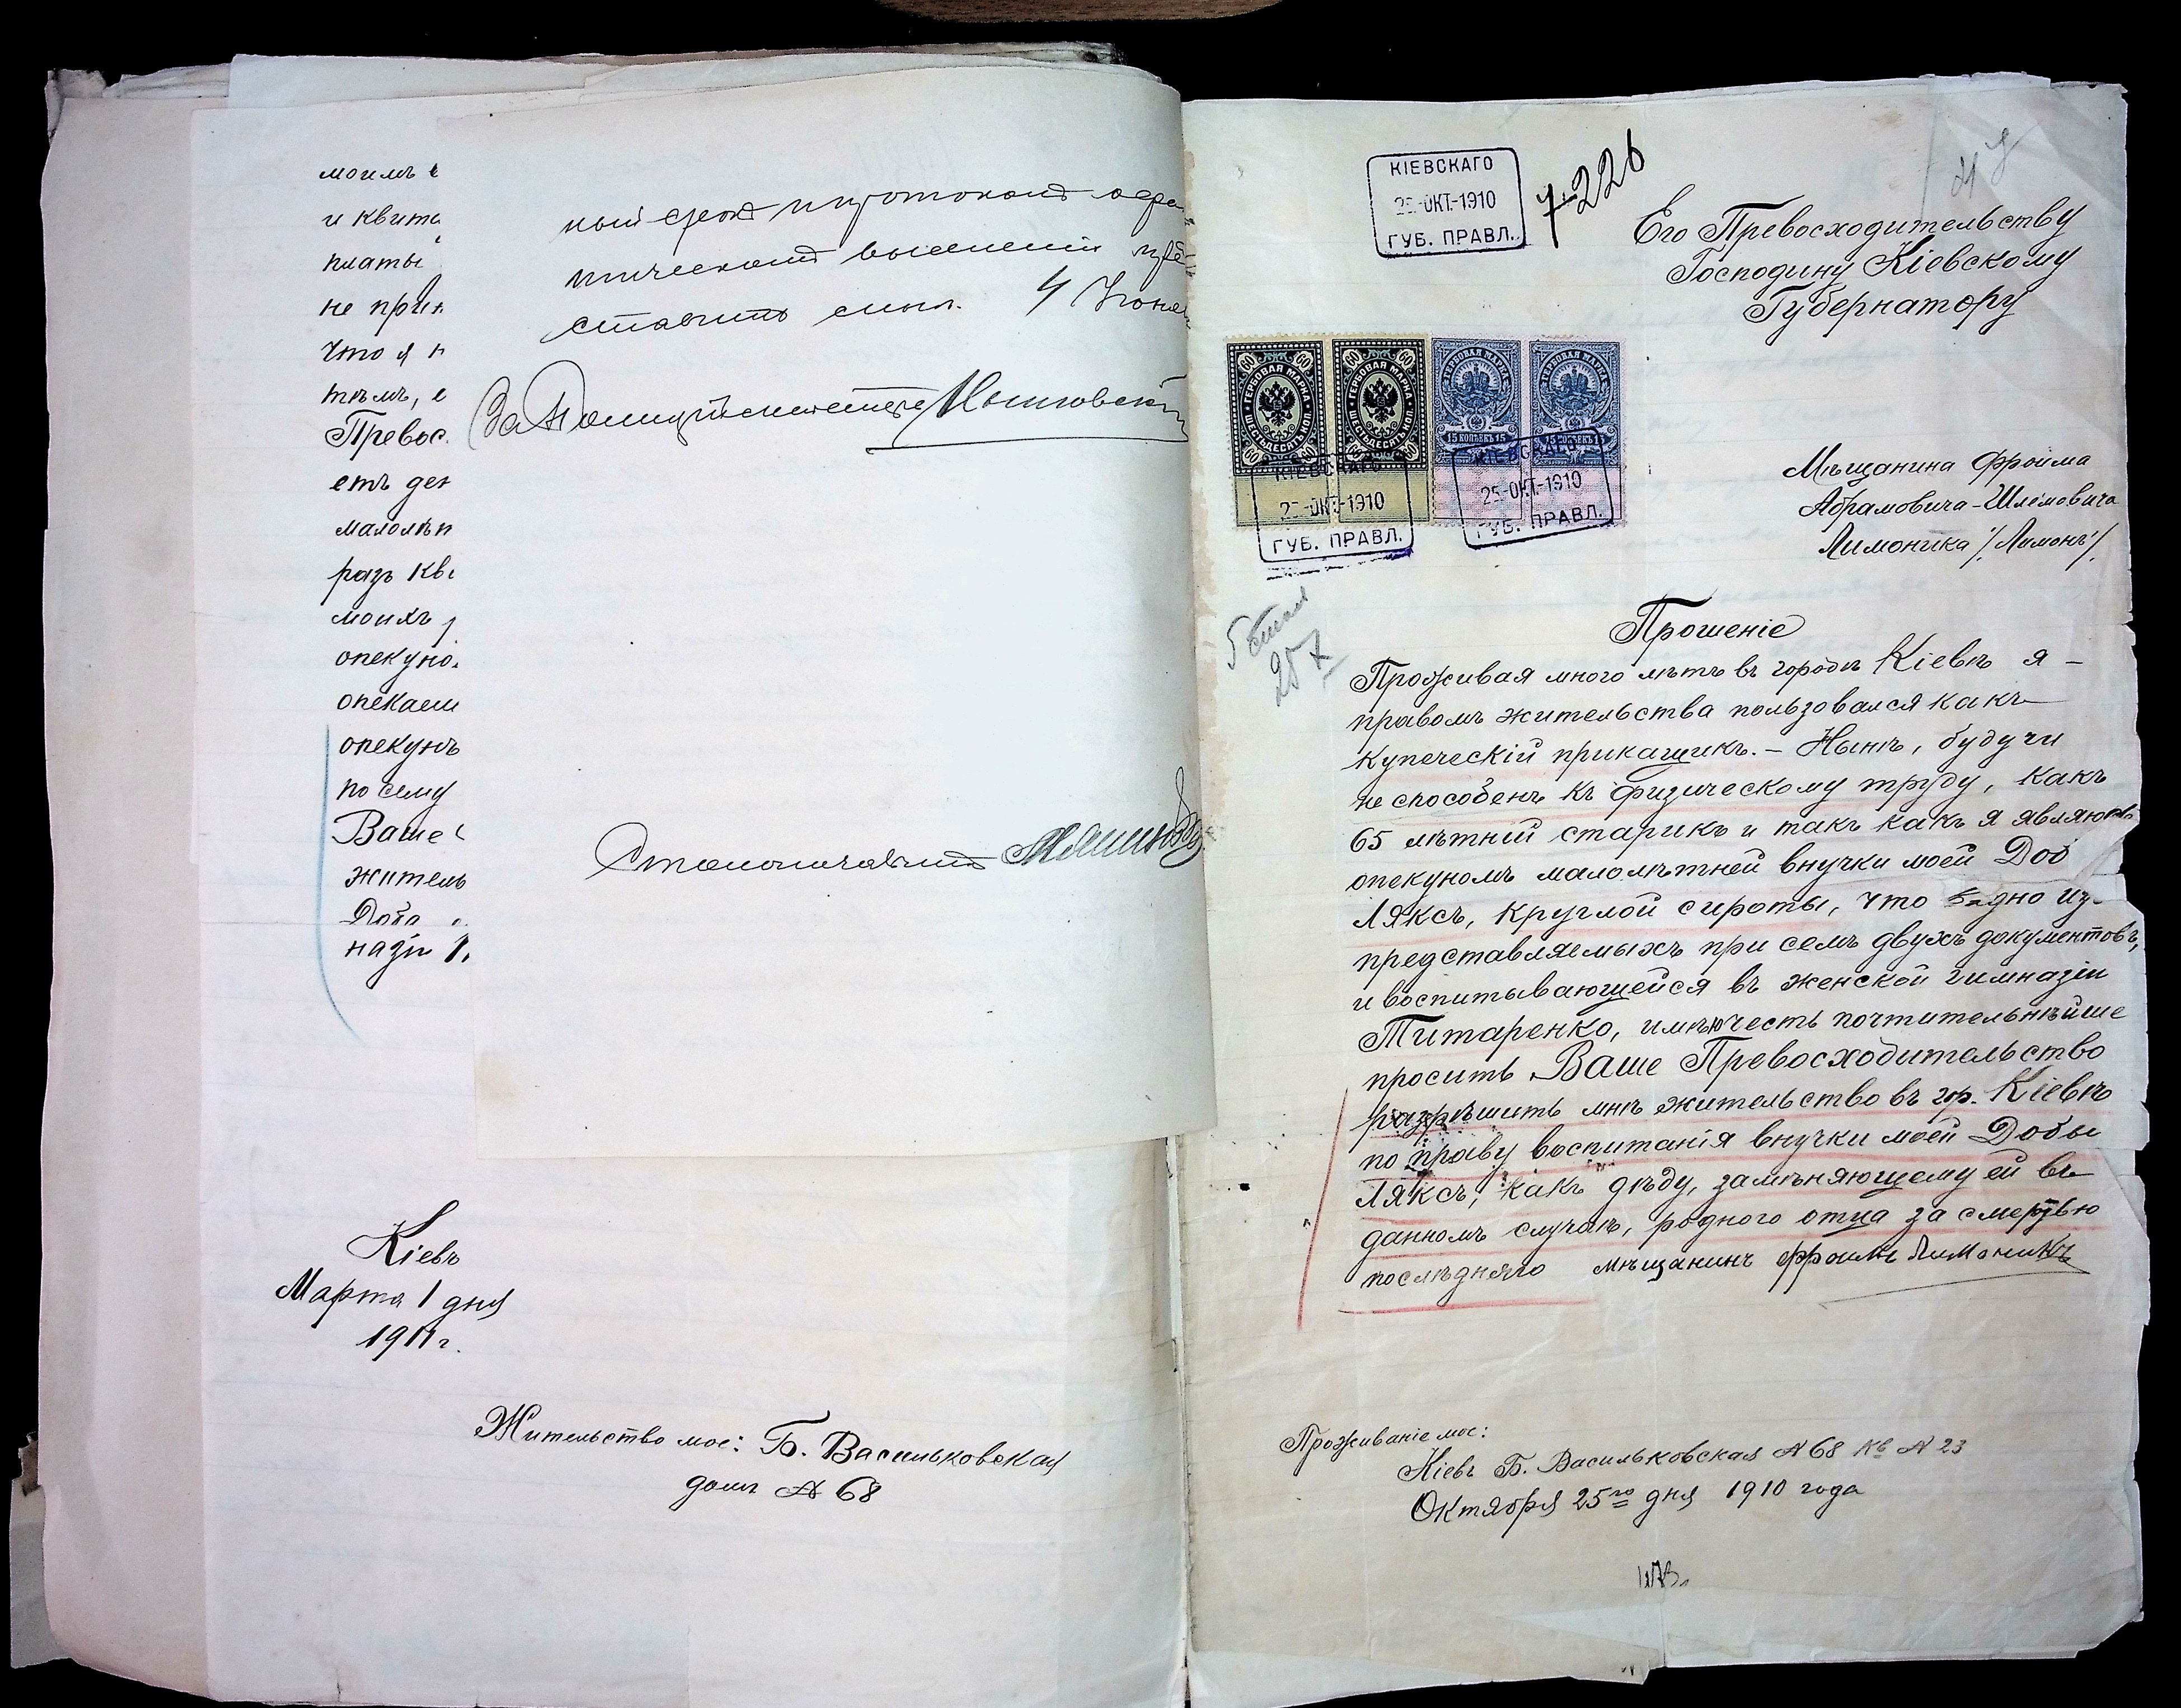 моимъ
и квит
платы
не прин
Что я н
тѣмъ, е
Превос
етъ ден
малолѣт
разъ кв
моихъ
опекуно
опекаем
опекунъ
по сему
Ваше
житель
Доба
назіи
ный срокъ
ставить 4 Іюня
За Полиціймейстера
Столоначальникъ
Кіевъ
Марта 1 дня
1911 г.
Жительство мое: Б. Васильковская
домъ № 68
КІЕВСКАГО
25-ОКТ.-1910
ГУБ. ПРАВЛ.
7-226
Его Превосходительству
Господину Кіевскому
Губернатору
60 60 ГЕРБОВАЯ МАРКА ШЕСТЬДЕСЯТЪ КОП. 60 60
60 60 ГЕРБОВАЯ МАРКА ШЕСТЬДЕСЯТЪ КОП. 60 60
ГЕРБОВАЯ МАРКА 15 КОПѢЕКЪ 15
ГЕРБОВАЯ МАРКА 15 КОПѢЕКЪ 15
КІЕВСКАГО
25-ОКТ-1910
ГУБ. ПРАВЛ.
КІЕВСКАГО
25-ОКТ-1910
ГУБ. ПРАВЛ.
Мѣщанина Фроима
Абрамовича-Шлемовича
Лимоника /Лимонъ/.
25 X
Прошеніе
Проживая много лѣтъ въ городѣ Кіевѣ я –
правомъ жительства пользовался какъ
купеческій прикащикъ. – Нынѣ, будучи
не способенъ къ физическому труду, какъ
65 лѣтній старикъ и такъ какъ я являюсь
опекуномъ малолѣтней внучки моей Доб
Ляксъ, круглой сироты, что видно из-
представляемыхъ при семъ двухъ документовъ,
и воспитывающейся въ женской гимназіи
Титаренко, имѣю честь почтительнѣйше
просить Ваше Превосходительство
разрѣшить мнѣ жительство въ гор. Кіевѣ
по праву воспитанія внучки моей Добы
Ляксъ, какъ дѣду, замѣняющему ей въ
данномъ случаѣ, родного отца за смертью
послѣдняго мѣщанинъ Фроимъ Лимоникъ
Проживаніе мое:
Кіевъ Б. Васильковская № 68 кв № 23
Октября 25го дня 1910 года